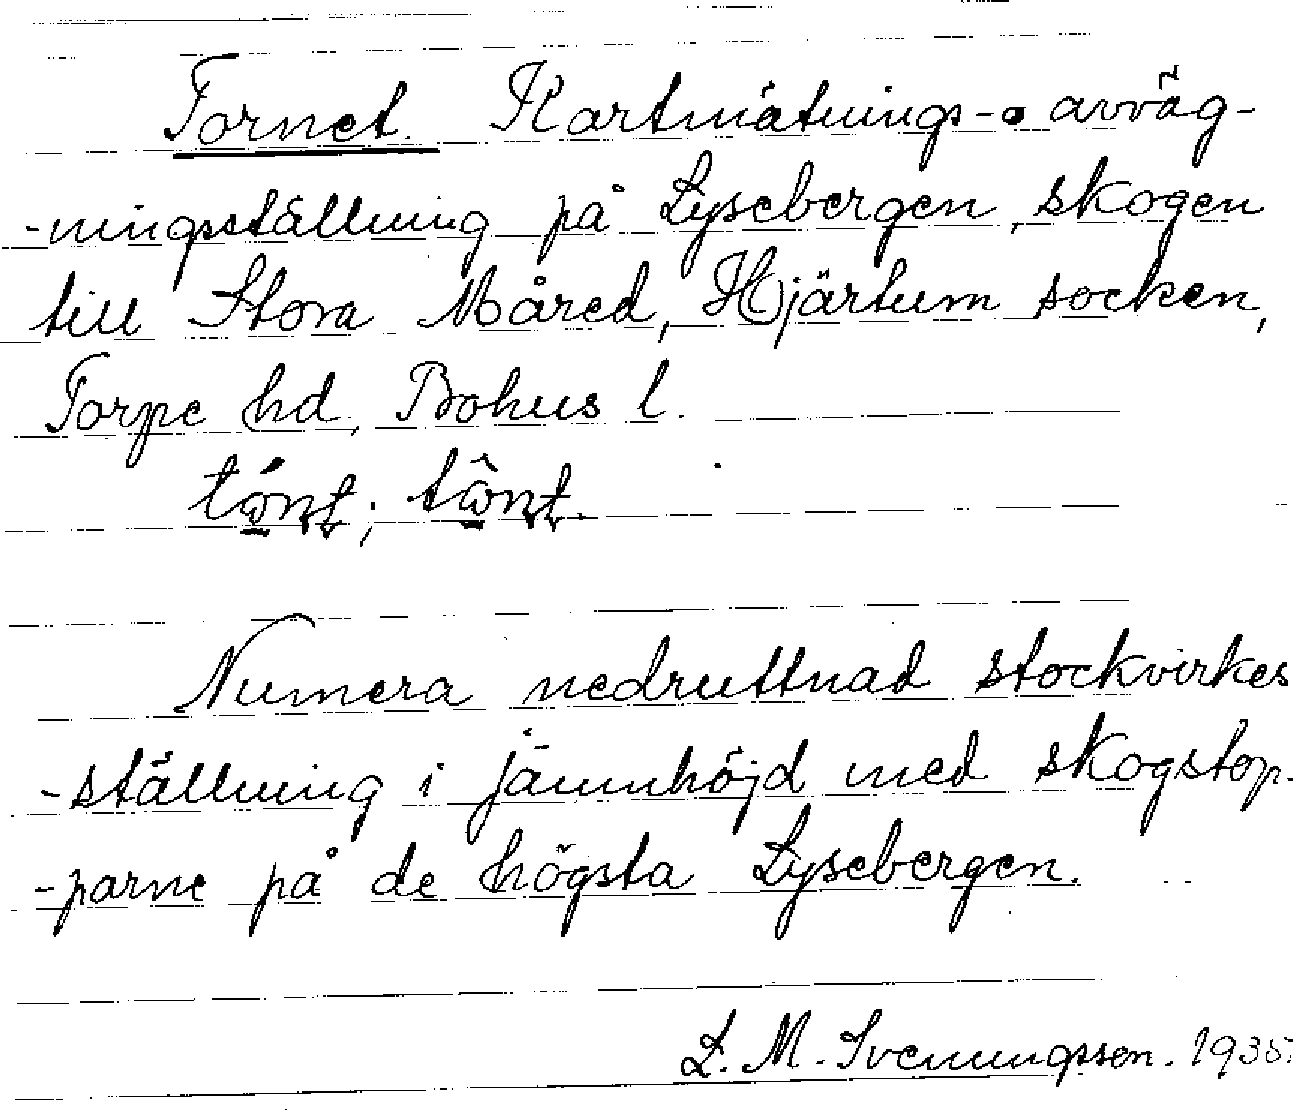 Tornet. Kartmätnings- o avväg-
-ningsställning på Lysebergen, skogen
till Stora Måred, Hjärtum socken,
Torpe hd, Bohus l.
Numera nedruttnad stockvirkes
-ställning i jämnhöjd med skogstop-
-parne på de högsta Lysebergen.
L. M. Svenungsson. 1935.